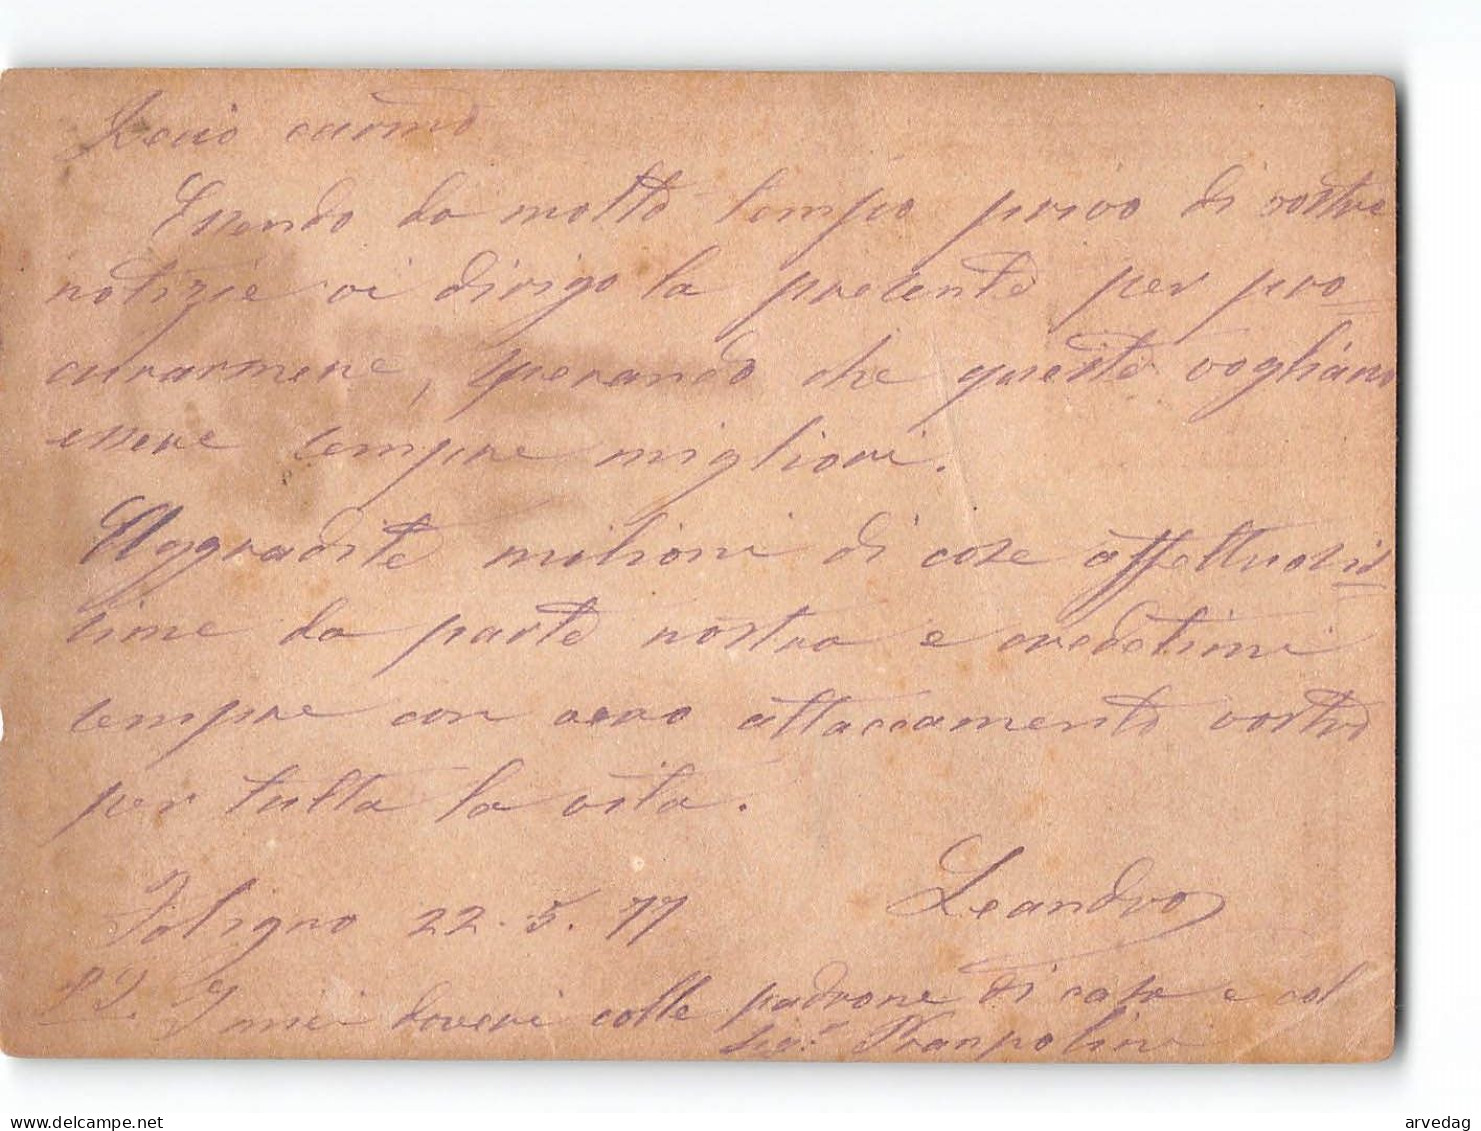 carino
Essendo da molto tempo privo di vostre
notizie vi dirigo la presente per pro=
curarmene, sperando che queste vogliano
essere sempre migliori.
Aggradite milioni di cose affettuosis=
sime da parte nostra e credetemi
sempre con vero attaccamento vostro
per tutta la vita.
Leandro
Foligno 22. 5. 77
I miei doveri colle padrone di casa e col
Sigr. Franpolini
arvedag